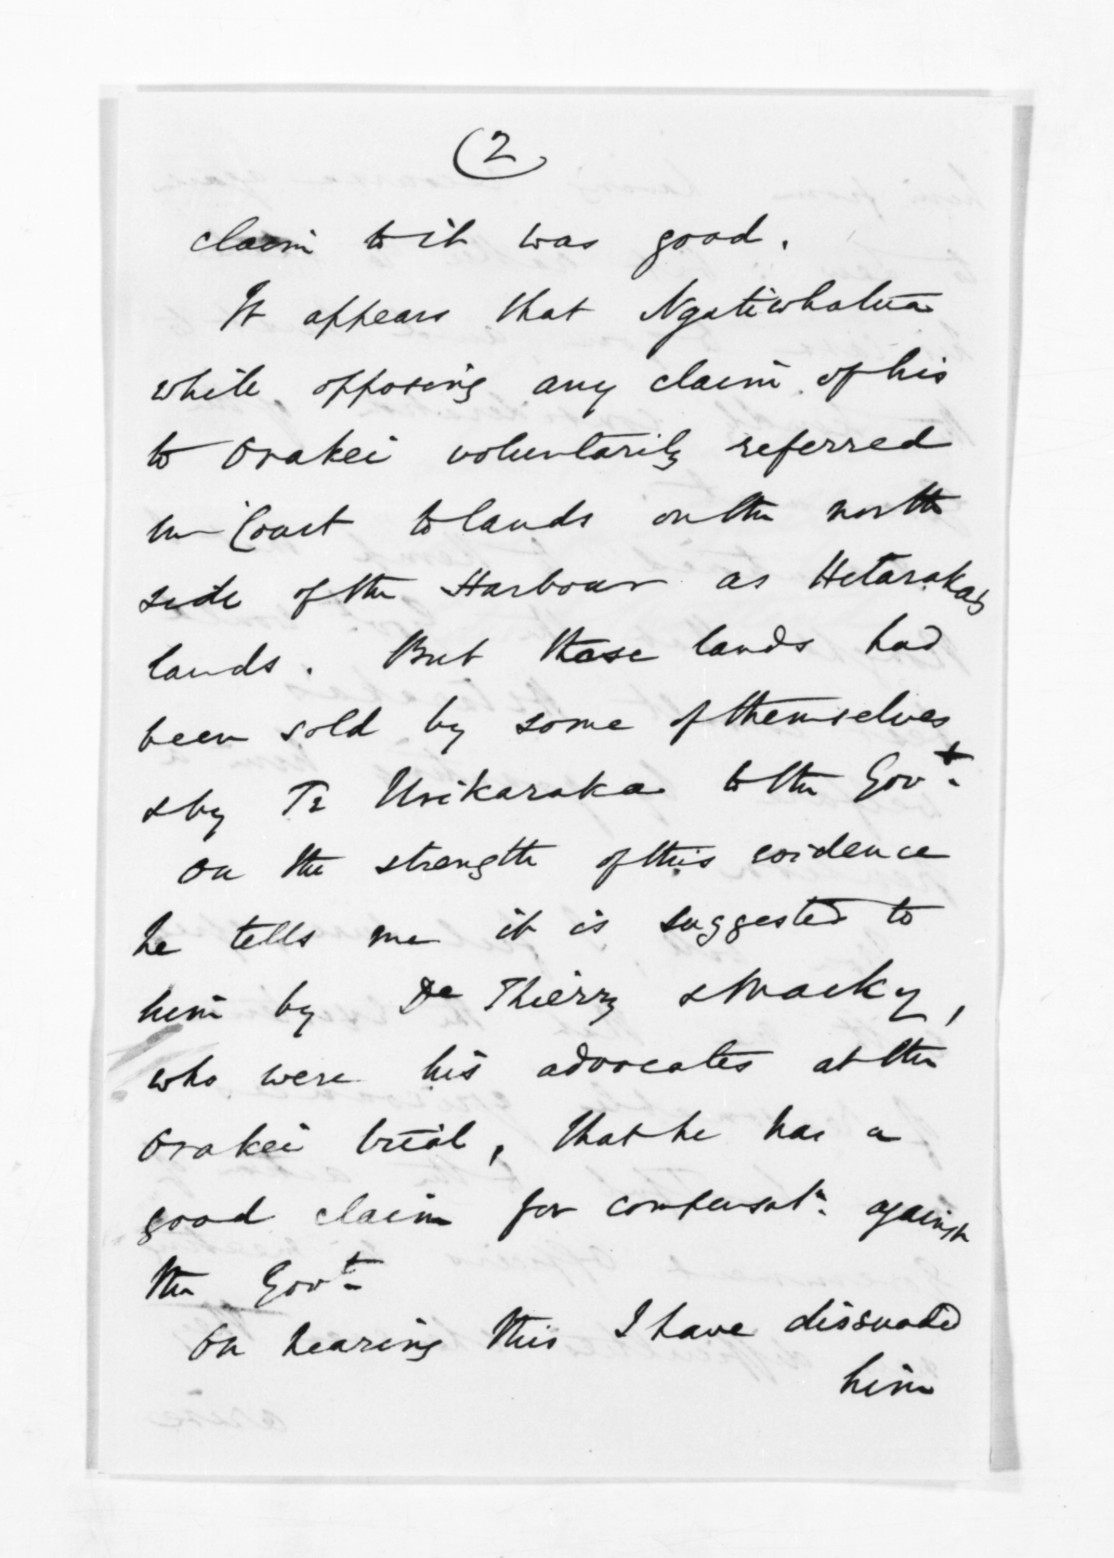 (2
claim to it was good.
It appears that Ngatiwhatua
while opposing any claim of his
to Orakei voluntarily referred
in Court to lands on the north
side of the Harbour as Hetarakas
lands. But those lands had
been sold by some of themselves
& by Te Urikaraka to the Govt.
On the strength of this evidence
he tells me it is suggested to
him by De Thierry &
who were his advocates at the
Orakei trial, that he has a
good claim for compensatn. against
the Govt.
On hearing this I have dissuaded
him